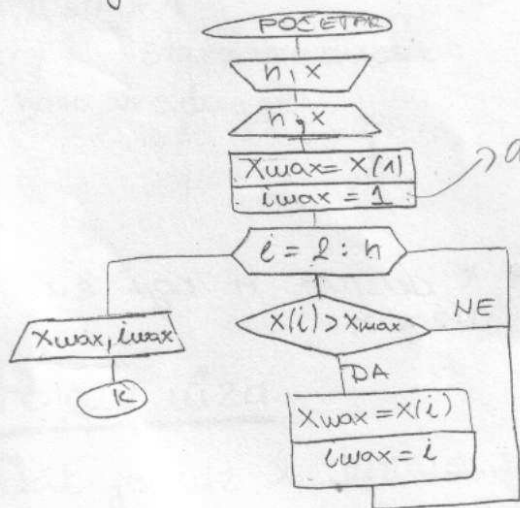 POČETAK
n, x
n, x
Xmax = X(1)
imax = 1
i = 2 : n
X(i) > Xmax
NE
DA
Xmax, imax
K
Xmax = X(i)
imax = i